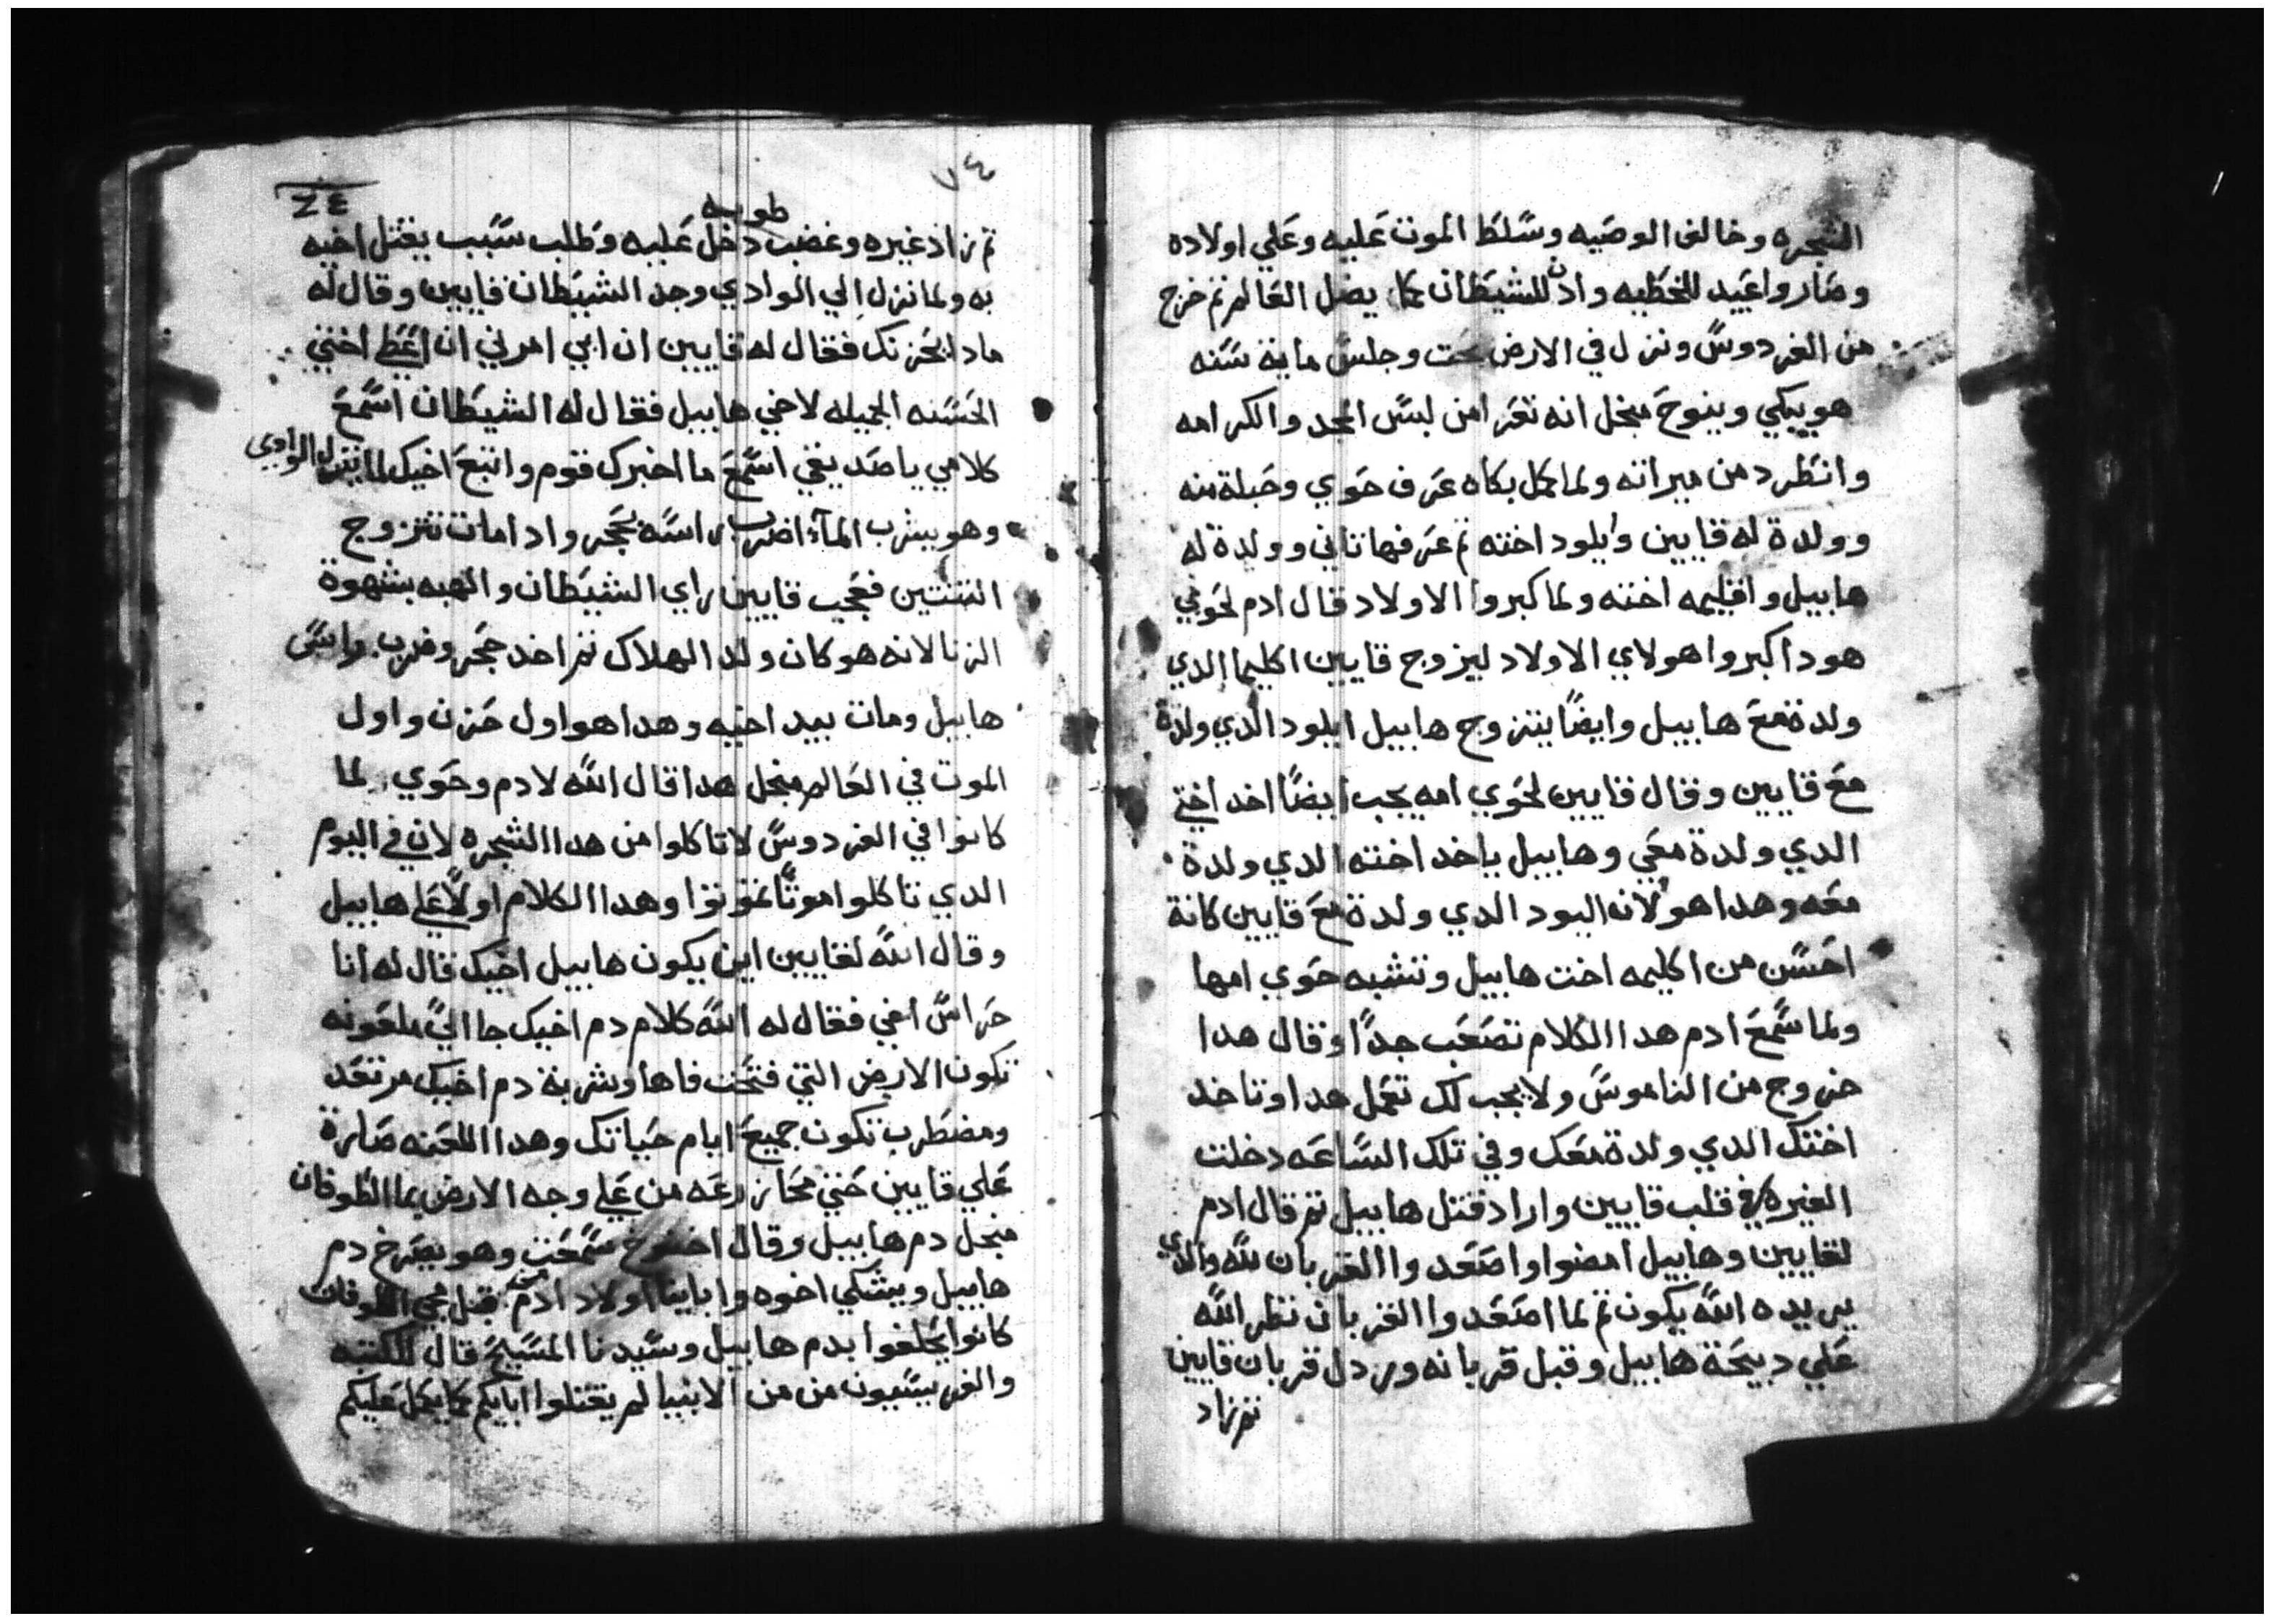 الشجره وخالف الوصيه وسلط الموت عليه وعلي اولاده
وصاروا عبيد للخطيه وادن للشيطان كما يضل العالم تم خرج
من الفردوس ونزل في الارض تحت وجلس ماية سنه
هو يبكي وينوح منجل انه تعرا من لبس المجد والكرامه
وانطرد من ميراته ولما كمل بكاه عرف حوي وحبلة منه
وولدة له قايين وايلود اخته تم عرفها تاني وولدة له
هابيل واقليمه اخته ولما كبروا الاولاد قال ادم لحوي
هودا كبروا هولاي الاولاد ليزوج قايين اكليما الدي
ولدة مع هابيل وايضًا يتزوج هابيل ايلود الدي ولدة
مع قايين وقال قايين لحوي امه يجب ايضًا اخد اختي
الدي ولدة معي وهابيل ياخد اخته الدي ولدة
معه وهدا هو لانه اليود الدي ولدة مع قايين كانة
احسن من اكليمه اخت هابيل وتشبه حوي امها
ولما سمع ادم هدا الكلام تصعب جدًا وقال هدا
خروج من الناموس ولا يجب لك تعمل هدا وتاخد
اختك الدي ولدة معك وفي تلك الساعه دخلت
الغيره في قلب قايين واراد قتل هابيل تم قال ادم
لقايين وهابيل امضوا واصعدوا القربان لله والدي
يريده الله يكون تم لما اصعدوا القربان نظر الله
علي دبيحة هابيل وقبل قربانه وردل قربان قايين
تم زاد
٧٤
٧٤
طوبه
تم زاد غيره وغضب دخل عليه وطلب سبب يقتل اخيه
به ولما نزل الي الوادي وجد الشيطان قايين وقال له
مادا يحزنك فقال له قايين ان ابي امرني ان اعطي اختي
الحسنه الجميله لاخي هابيل فقال له الشيطان اسمع
كلامي يا صديقي اسمع ما اخبرك قوم واتبع اخيك لما ينزل الوادي
وهو يشرب الماء اضرب راسه بحجر وادا مات تتزوج
التنتين فعجب قايين راي الشيطان والهبه بشهوة
الزنا لانه هو كان ولد الهلاك تم اخد حجر وضرب راس
هابيل ومات بيد اخيه وهدا هو اول حزن واول
الموت في العالم منجل هدا قال الله لادم وحوي لما
كانوا في الفردوس لا تاكلوا من هدا الشجره لان في اليوم
الدي تاكلوا موتًا تموتوا وهدا الكلام اولًا علي هابيل
وقال الله لقايين اين يكون هابيل اخيك قال له انا
حراس اخي فقال له الله كلام دم اخيك جا الي ملعونه
تكون الارض التي فتحت فاها وشربة دم اخيك مرتعد
ومضطرب تكون جميع ايام حياتك وهدا اللعنه صارة
علي قايين حتي محا زرعه من علي وجه الارض بما الطوفان
منجل دم هابيل وقال اخنوخ سمعت وهو يصرخ دم
هابيل ويشكي اخوه وابابنا اولاد ادم قبل مجي الطوفان
كانوا يحلفوا بدم هابيل وسيدنا المسيح قال للكتبه
والفريسيون من من الانبيا لم يقتلوا ابايكم كما يكمل عليكم